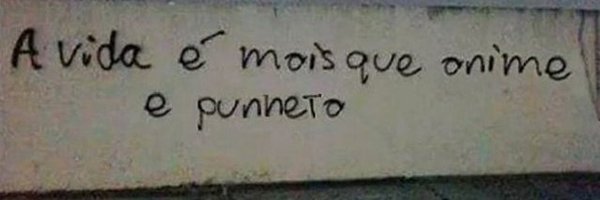 A vida é mais que anime
e punheta